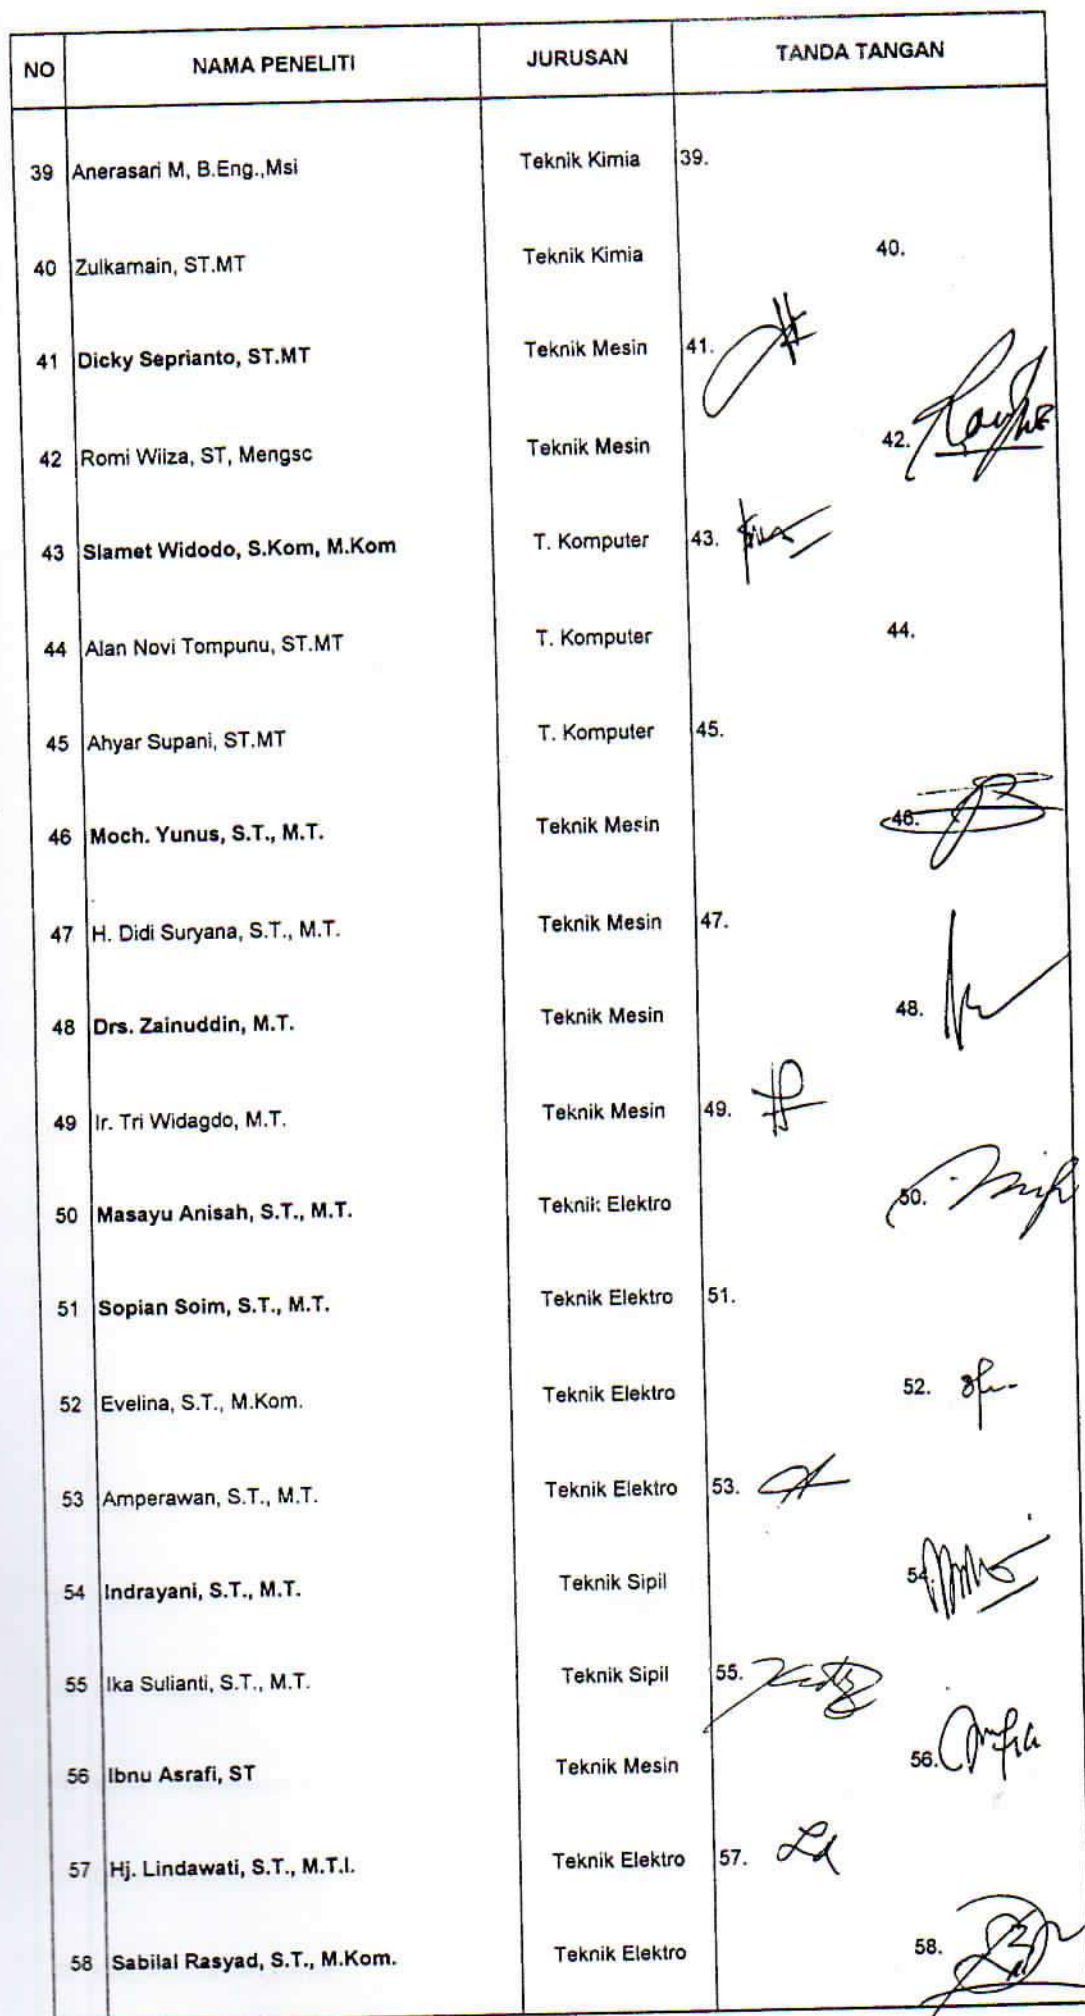 NO NAMA PENELITI JURUSAN TANDA TANGAN
39 Anerasari M, B.Eng.,Msi Teknik Kimia 39.
40 Zulkarnain, ST.MT Teknik Kimia 40.
41 Dicky Seprianto, ST.MT Teknik Mesin 41.
42 Romi Wilza, ST, Mengsc Teknik Mesin 42.
43 Slamet Widodo, S.Kom, M.Kom T. Komputer 43.
44 Alan Novi Tompunu, ST.MT T. Komputer 44.
45 Ahyar Supani, ST.MT T. Komputer 45.
46 Moch. Yunus, S.T., M.T. Teknik Mesin 46.
47 H. Didi Suryana, S.T., M.T. Teknik Mesin 47.
48 Drs. Zainuddin, M.T. Teknik Mesin 48.
49 Ir. Tri Widagdo, M.T. Teknik Mesin 49.
50 Masayu Anisah, S.T., M.T. Teknik Elektro 50.
51 Sopian Soim, S.T., M.T. Teknik Elektro 51.
52 Evelina, S.T., M.Kom. Teknik Elektro 52.
53 Amperawan, S.T., M.T. Teknik Elektro 53.
54 Indrayani, S.T., M.T. Teknik Sipil 54.
55 Ika Sulianti, S.T., M.T. Teknik Sipil 55.
56 Ibnu Asrafi, ST Teknik Mesin 56.
57 Hj. Lindawati, S.T., M.T.I. Teknik Elektro 57.
58 Sabilal Rasyad, S.T., M.Kom. Teknik Elektro 58.